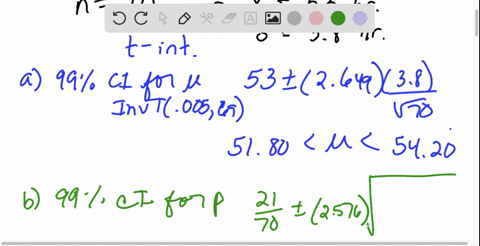 t-int.
a) 99% CI for μ 53 ± (2.649) (3.8)/√70
InvT(.005, 69)
51.80 < μ < 54.20
b) 99% CI for p 21/70 ± (2.576)√